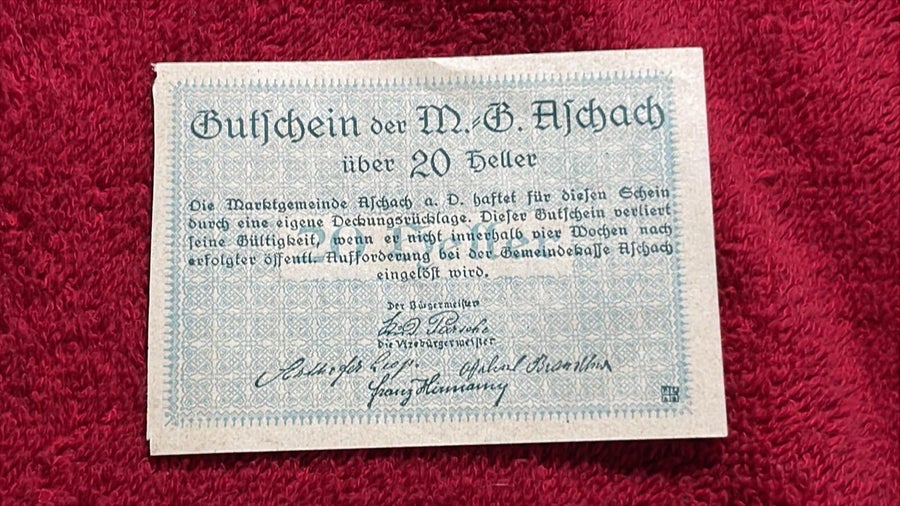 Gutschein der M.-G. Aschach
über 20 Heller
Die Marktgemeinde Aschach a. D. haftet für diesen Schein
durch eine eigene Deckungsrücklage. Dieser Gutschein verliert
seine Gültigkeit, wenn er nicht innerhalb vier Wochen nach
erfolgter öffentl. Aufforderung bei der Gemeindekasse Aschach
eingelöst wird.
20 Heller
Der Bürgermeister
Die Vizebürgermeister
Franz